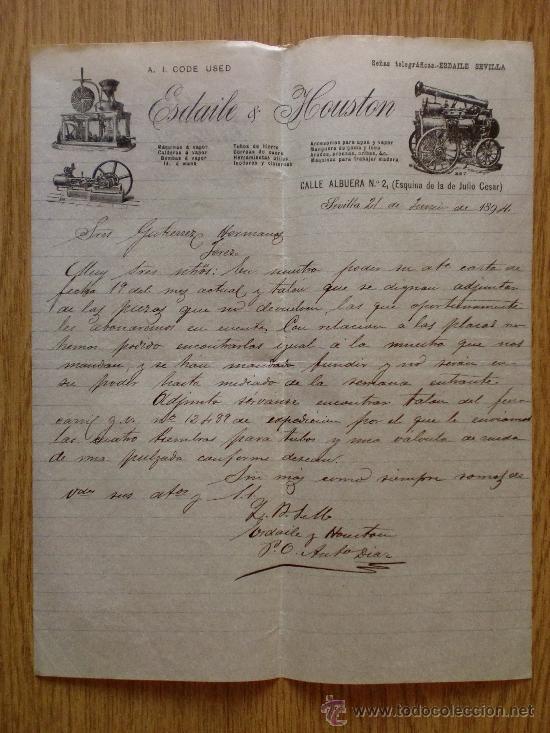 A. I. CODE USED
Señas telegráficas.-ESDAILE SEVILLA
Esdaile & Houston
Máquinas á vapor
Calderas á vapor
Bombas á vapor
Id. á mano
Tubos de hierro
Correas de cuero
Herramientas útiles
Inodoros y cisternas
Accesorios para agua y vapor
Manguera de goma y lona
Arados, prensas, cribas, &c.
Máquinas para trabajar madera
CALLE ALBUERA N.º 2, (Esquina de la de Julio Cesar)
Sevilla 21 de Junio de 1894
Sres Gutierrez Hermanos
Jerez
Muy Sres nuestros: En nuestro poder su carta de
fecha 19 del mes actual y talon que se dignan adjuntar
de las piezas que nos devuelven las que oportunamente
les abonaremos en cuenta. Con relacion á las placas no
hemos podido encontrarlas igual á la muestra que nos
mandan, y se han mandado fundir y no serán en
su poder hasta mediado de la semana entrante.
Adjunto servanse encontrar talon del ferro
carril g.v. nº 12489 de expedicion por el que le enviamos
las cuatro para tubos y una valvula de rueda
de una pulgada conforme desean.
Sin mas como siempre somos de
Vdes sus atos y S.S.
Q. B. S. M
Esdaile y Houston
P.O. Anto Diaz
todocoleccion
http://www.todocoleccion.net